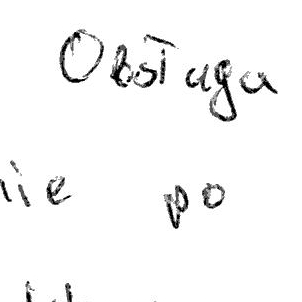 Obsługa
nie po